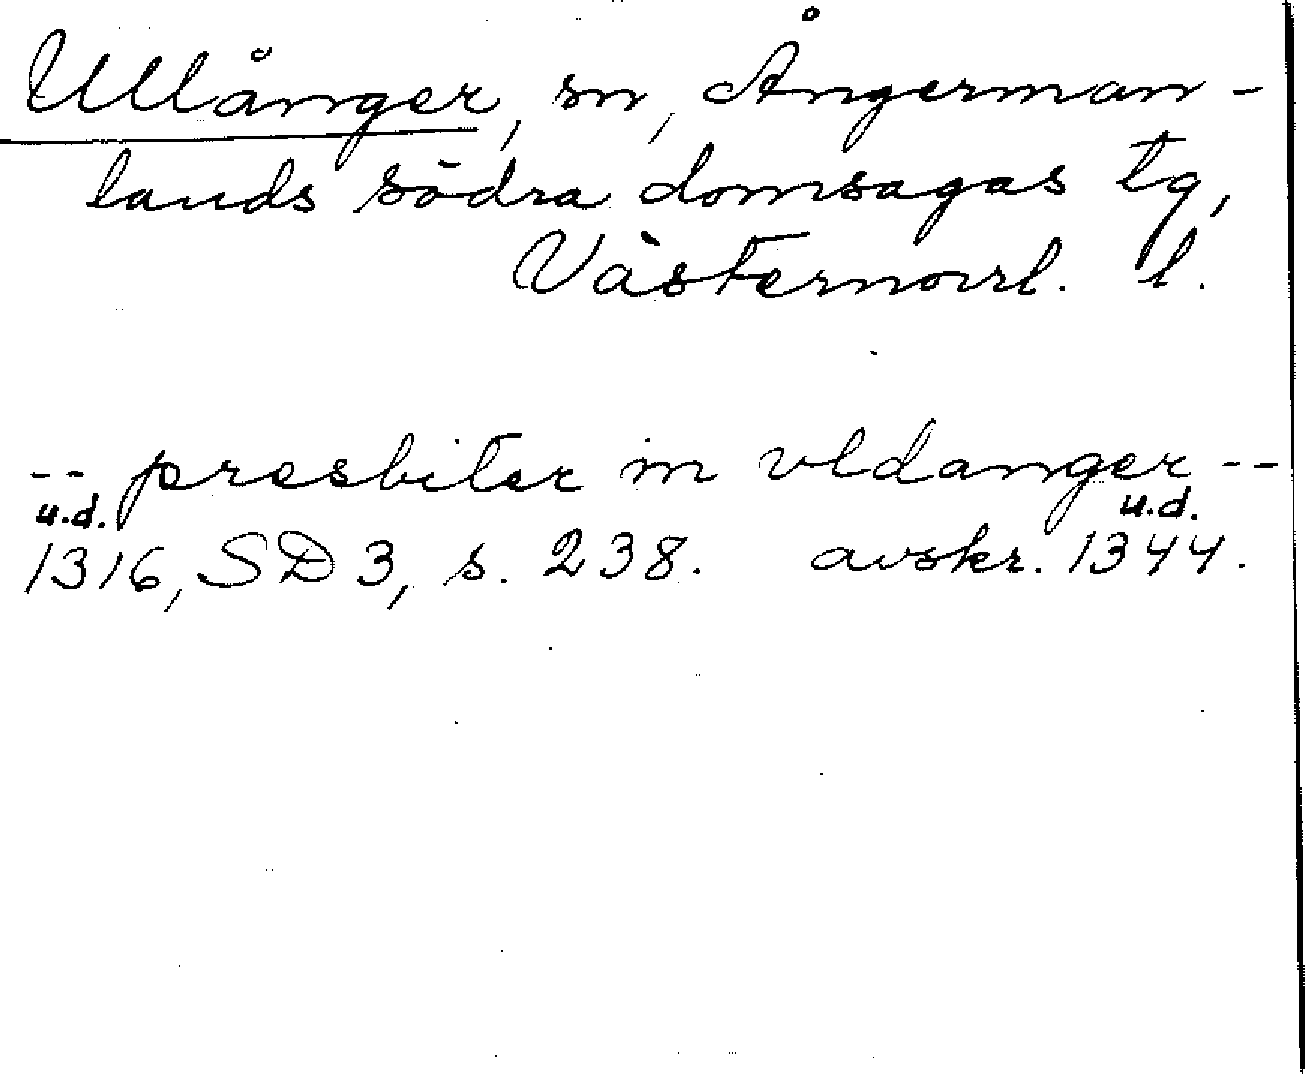 Ullånger, sn, Ångerman-
lands södra domsagas tg,
Västernorrl. l.
-- presbiter in vldanger --
u.d. u.d.
1316, SD 3, s. 238. avskr. 1344.